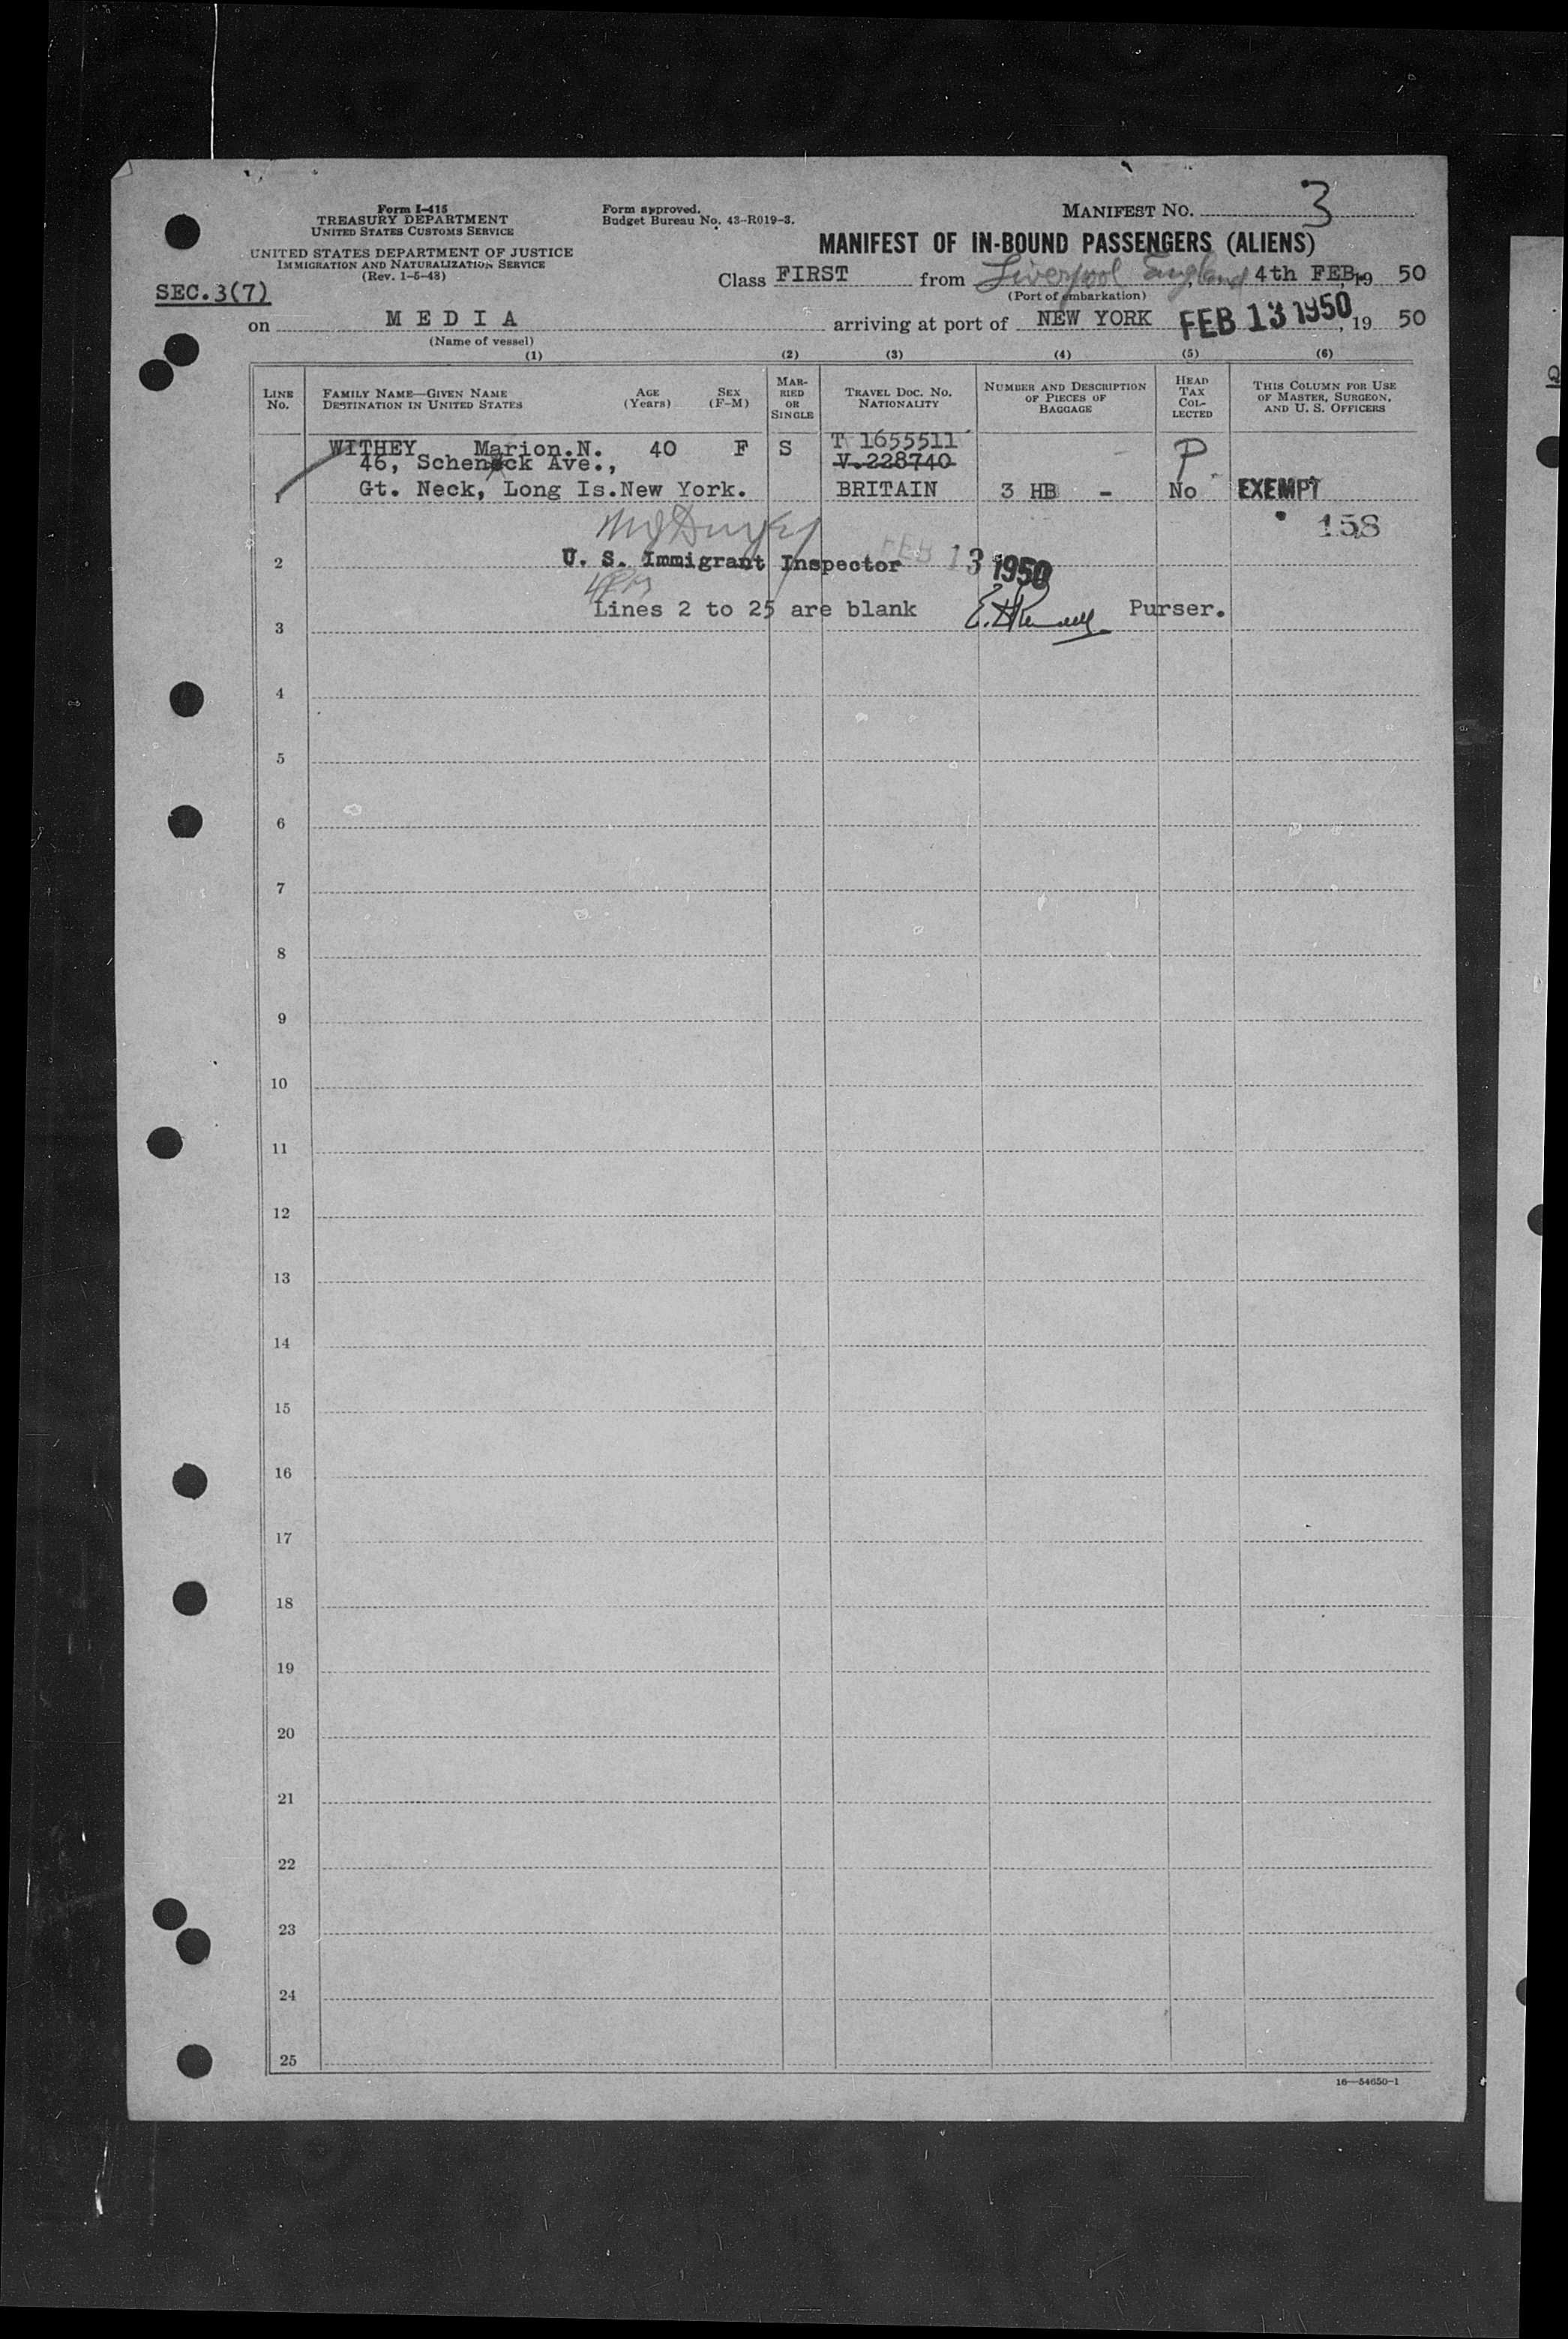 Form I-415
TREASURY DEPARTMENT
UNITED STATES CUSTOMS SERVICE
UNITED STATES DEPARTMENT OF JUSTICE
IMMIGRATION AND NATURALIZATION SERVICE
(Rev. 1-5-43)
SEC.3(7)
Form approved.
Budget Bureau No. 43-R019-3.
MANIFEST NO. 3
MANIFEST OF IN-BOUND PASSENGERS (ALIENS)
Class FIRST from Liverpool England, 4th FEB, 19 50
(Port of embarkation)
on MEDIA arriving at port of NEW YORK FEB 13 1950, 19 50
(Name of vessel)
(1) (2) (3) (4) (5) (6)
LINE No.
FAMILY NAME—GIVEN NAME
DESTINATION IN UNITED STATES
AGE (Years)
SEX (F-M)
MARRIED OR SINGLE
TRAVEL DOC. NO.
NATIONALITY
NUMBER AND DESCRIPTION
OF PIECES OF
BAGGAGE
HEAD TAX COLLECTED
THIS COLUMN FOR USE
OF MASTER, SURGEON,
AND U. S. OFFICERS
WITHEY Marion.N. 40 F S T 1655511 P
46, Schenck Ave., V.228740
1 Gt. Neck, Long Is.New York. BRITAIN 3 HB - No EXEMPT
158
2 U. S. Immigrant Inspector FEB 13 1950
Lines 2 to 25 are blank Purser.
3
4
5
6
7
8
9
10
11
12
13
14
15
16
17
18
19
20
21
22
23
24
25
16—54650-1